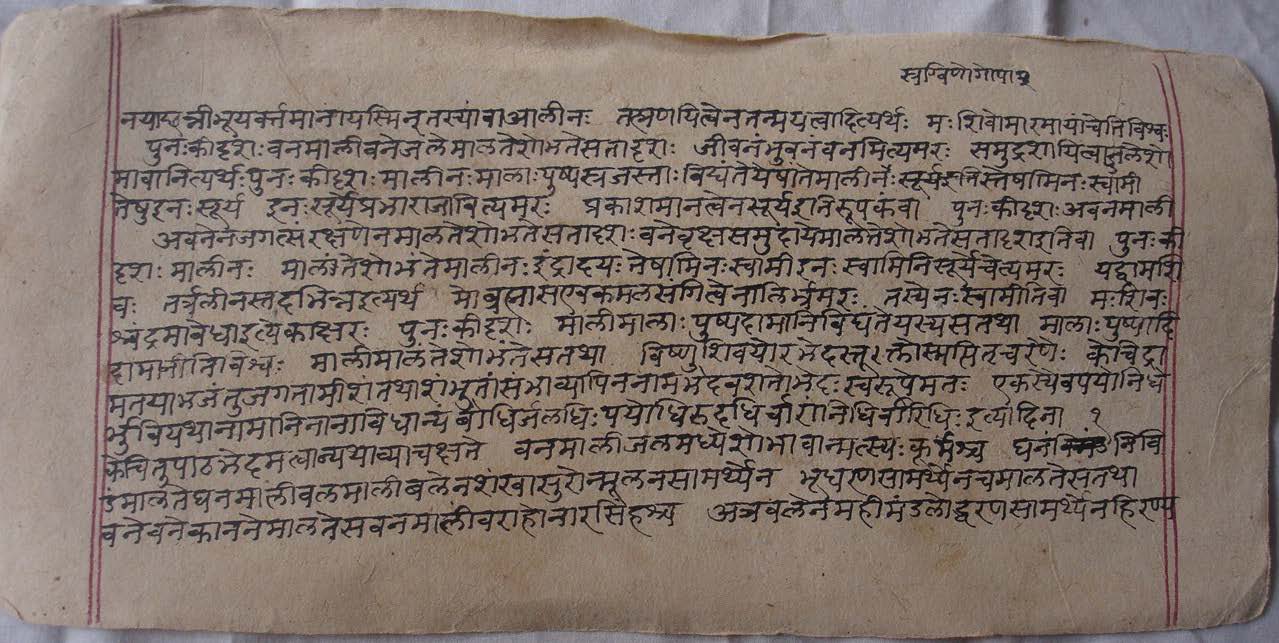 स्रग्विणोगोपा २
नयाछन्नीभूयवर्त्तमानायस्मिन्तस्यांवाआलीनः तत्प्रणयित्वेनतन्मयत्वादित्यर्थः मःशिवोमारमायांचेतिविश्वः
पुनःकीदृशःवनमालीवनेजलेमालतेशोभतेसतादृशः जीवनंभुवनंवनमित्यमरः समुद्रशायित्वाज्जलेशो
भावानित्यर्थःपुनःकीदृशःमालीनःमालाःपुष्पस्रजस्ताः
तेषुइनःसूर्य इनःसूर्येप्रभाराजावित्यमरः प्रकाशमानत्वेनसूर्यइतिरूपकंवा पुनःकीदृशःअवनमाली
अवनेनजगत्संरक्षणेनमालतेशोभतेसतादृशःवनेवृक्षसमुदायेमालतेशोभतेसतादृशइतिवा पुनःकी
दृशःमालीनः मालंतेशोभंतेमालीनःइंद्रादयःतेषामिनःस्वामीइनःस्वामिनिसूर्येचेत्यमरः यद्वामशि
वः तत्रलीनस्तदभिन्नइत्यर्थ तस्येनःस्वामीतिवा मःशिवः
श्चंद्रमावेधाइत्येकाक्षरः पुनःकीदृशः मालीमालाःपुष्पदामानिविद्यंतेयस्यसतथा मालाःपुष्पादि
दामानीतिविश्वः मालीमालतेशोभतेसतथा विष्णुशिवयोरभेदस्तूक्तोस्मत्पितृचरणैः केचिद्रा
मतयाभजंतुजगतामीशंतथाशंभुतांसंभाव्यापिननामभेदवशतोभेदःस्वरूपेमतः एकस्यैवपयोनिधे
र्भुवियथानामानिनानाविधान्यंबोधिर्जलधिःपयोधिरुदधिर्वारांनिधिर्वारिधिःइत्यादिना १
केचित्तुपाठभेदमत्वान्यथाव्याचक्षते वनमालीजलमध्येशोभावान्मत्स्यःकूर्मश्च घनं निबि
डंमालतेघनमालीबलमालीबलेनशंखासुरोन्मूलनसामर्थ्येन भूधरणसामर्थ्येनचमालतेसतथा
वनेवनेकाननेमालतेसवनमालीवराहोनारसिंहश्च अत्रबलेनमहीमंडलोद्धरणसामर्थ्येनहिरण्य